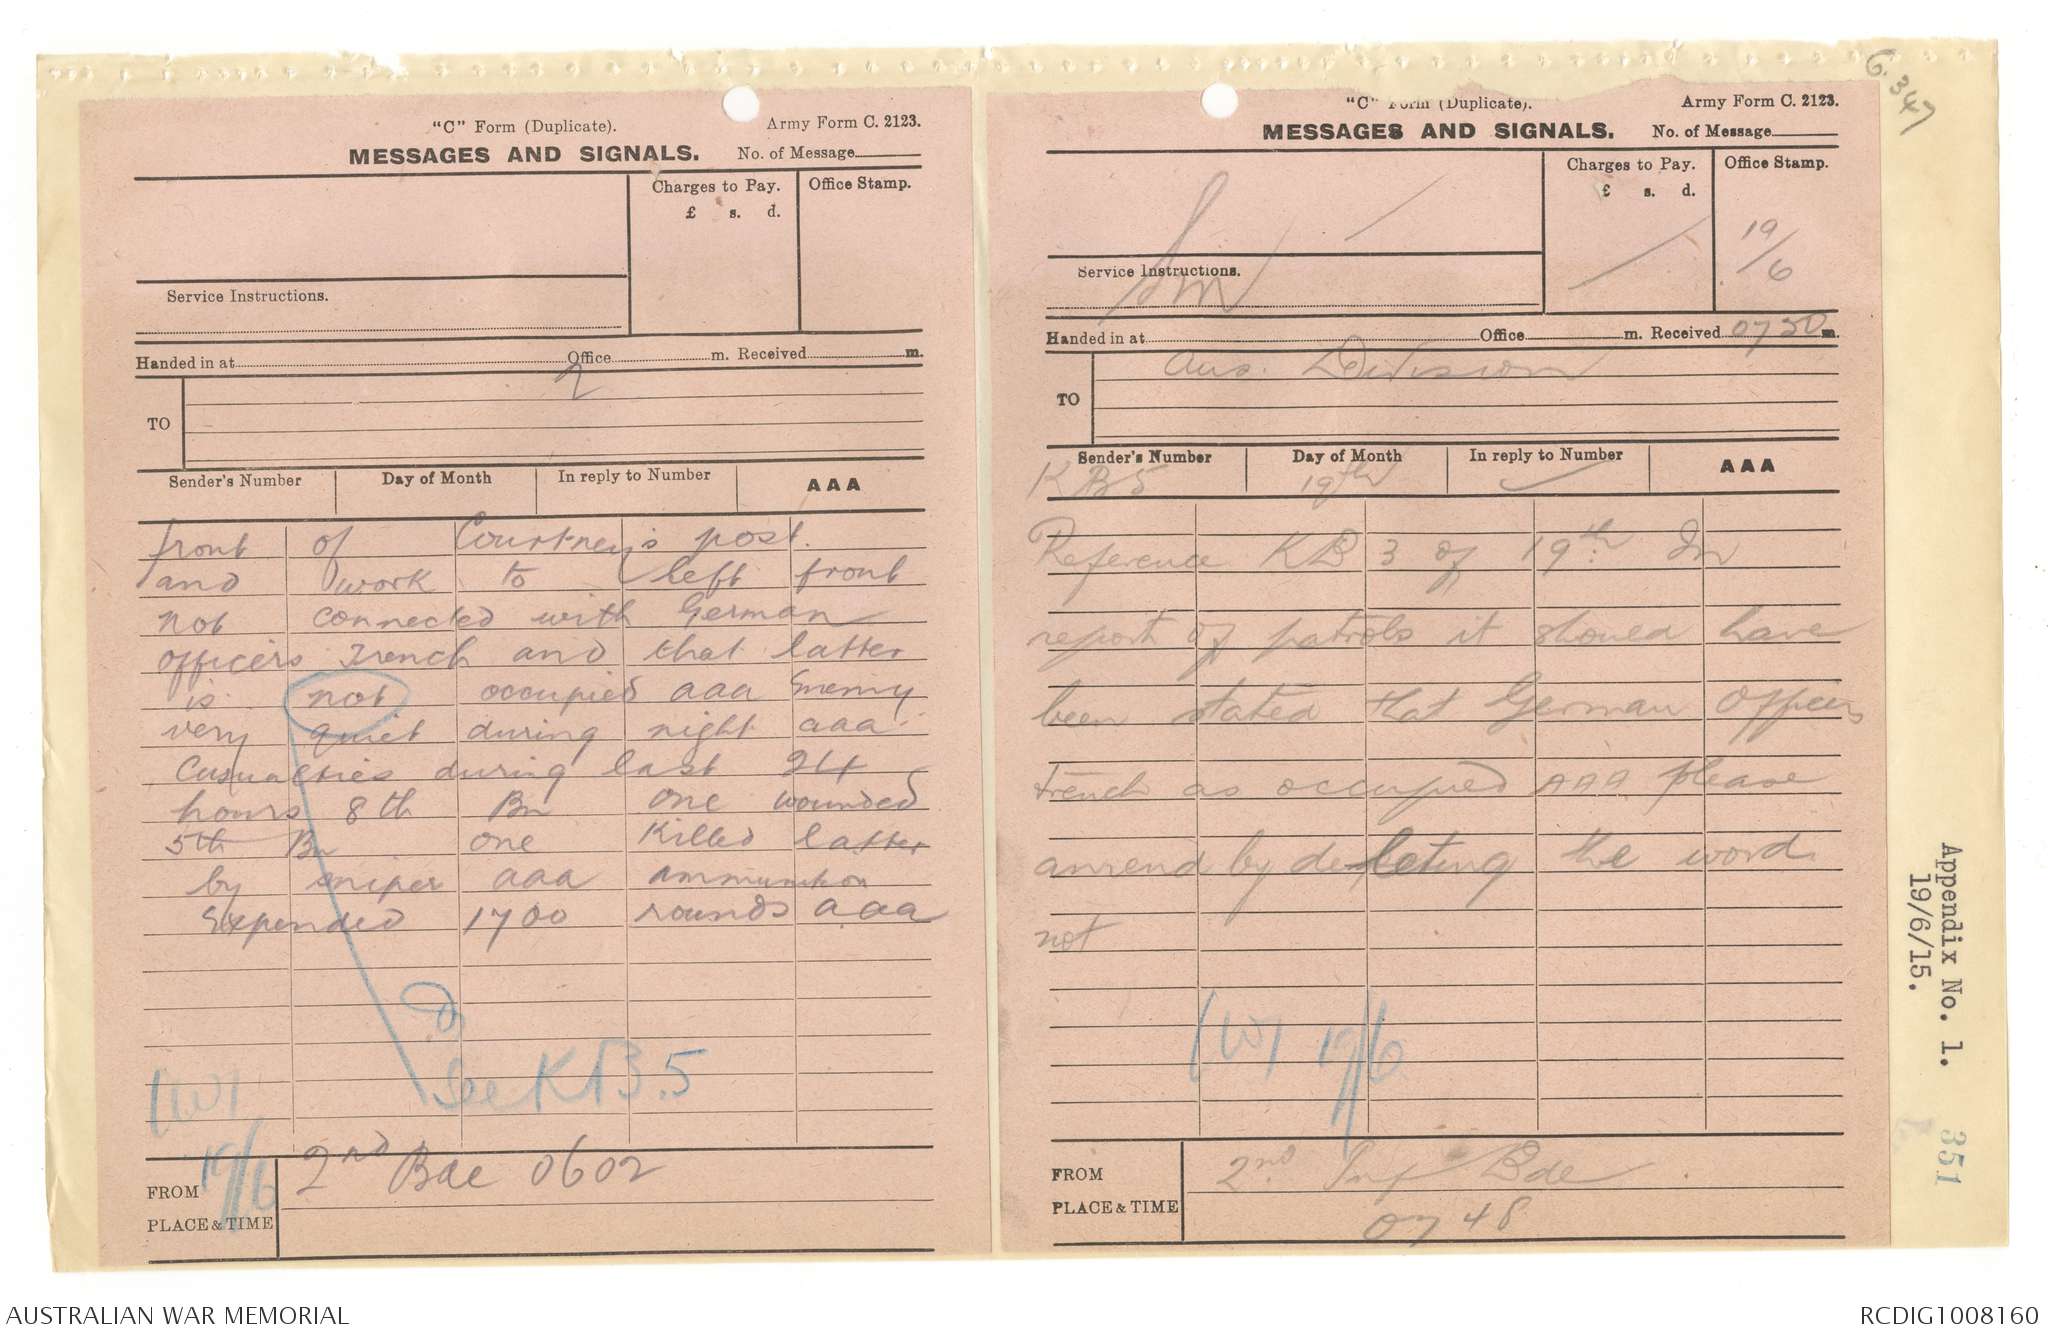 "C" Form (Duplicate).
Army Form C. 2123.
MESSAGES AND SIGNALS.
No. of Message
Charges to Pay.
£ s. d.
Office Stamp.
Service Instructions.
Handed in at Office m. Received m.
2
TO
Sender's Number
Day of Month
In reply to Number
AAA
front of Courtney's post.
and work to left front
not connected with German
officers Trench and that latter
is not occupied aaa Enemy
very quiet during night aaa
Casualties during last 24
hours 8th Bn one wounded
5th Bn one Killed latter
by sniper aaa ammunition
Expended 1700 rounds aaa
See KB.5
(W)
19/6
FROM
PLACE & TIME
2nd Bde 0602
"C" Form (Duplicate).
Army Form C. 2123.
MESSAGES AND SIGNALS.
No. of Message
Charges to Pay.
£ s. d.
Office Stamp.
19/6
Service Instructions.
Sm
Handed in at Office m. Received 0750 m.
TO
Aus. Division
Sender's Number
Day of Month
In reply to Number
AAA
KB5 19th
Reference KB 3 of 19th. In
report of patrols it should have
been stated that German Officers
trench as occupied AAA please
amend by deleting the word
not
(W) 19/6
FROM
PLACE & TIME
2nd Inf Bde
0748
G.347
Appendix No. 1.
19/6/15.
351
AUSTRALIAN WAR MEMORIAL
RCDIG1008160